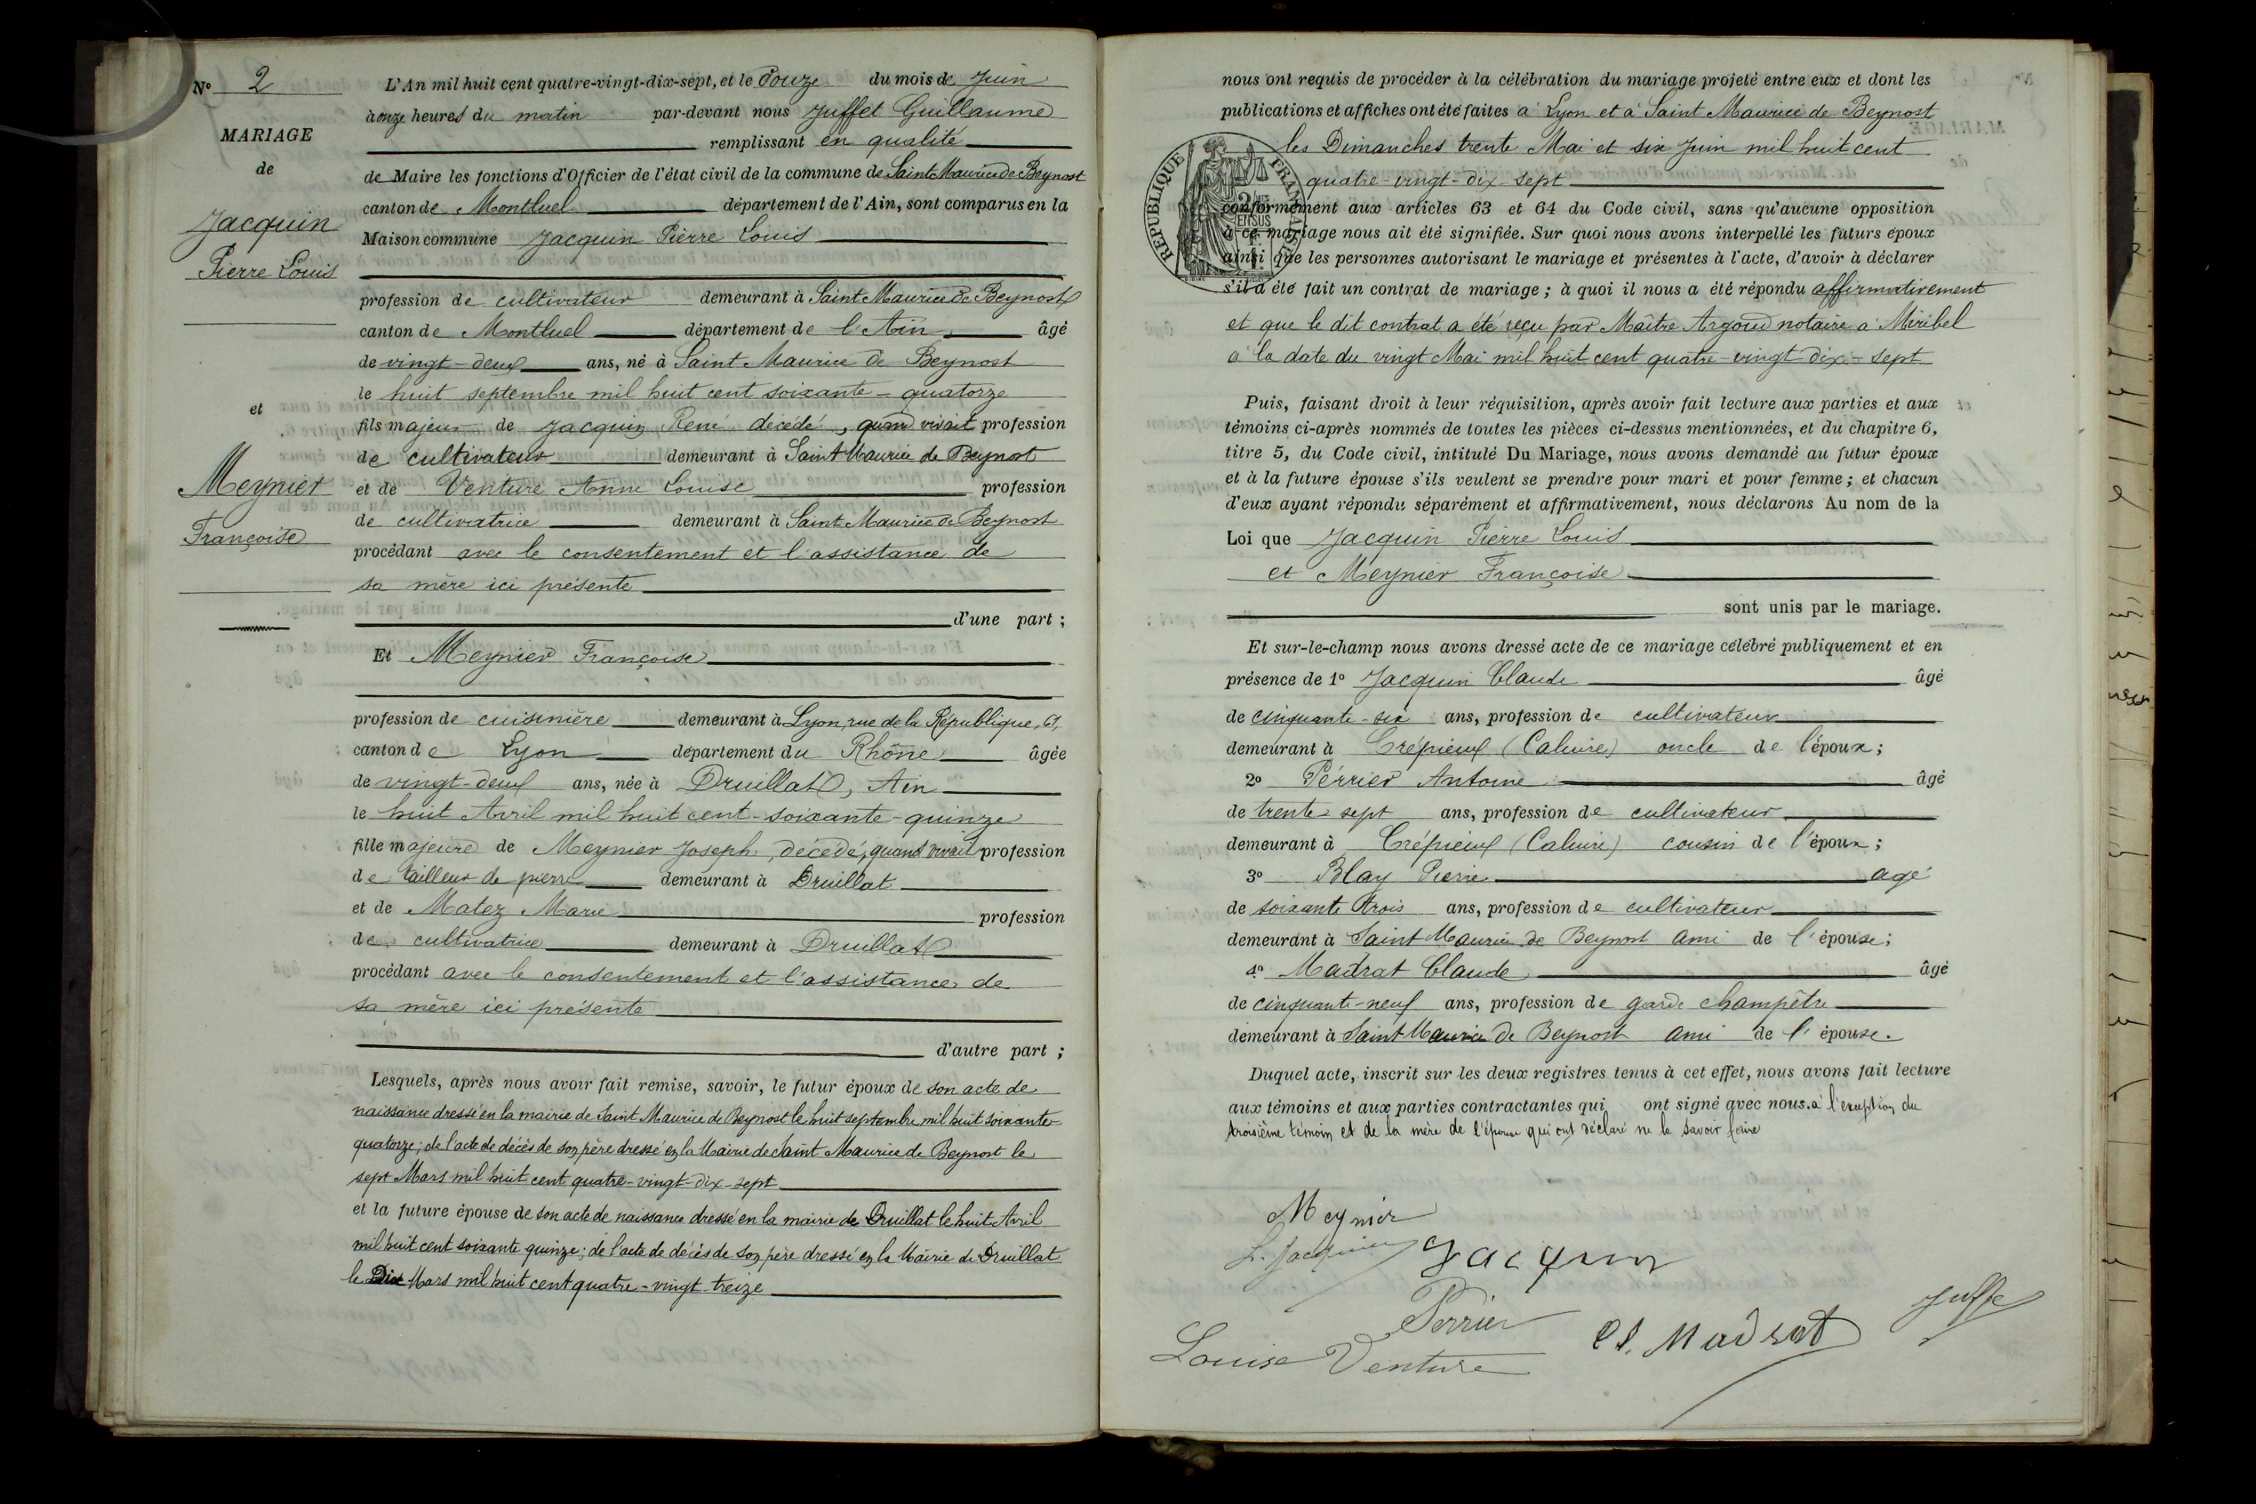 N° 2
MARIAGE
de
Jacquin
Pierre Louis
et
Meynier
Françoise
L'An mil huit cent quatre-vingt-dix-sept, et le Douze du mois de Juin
à onze heures du matin par-devant nous Juffet Guillaume
remplissant en qualité
de Maire les fonctions d'Officier de l'état civil de la commune de Saint Maurice de Beynost
canton de Montluel département de l'Ain, sont comparus en la
Maison commune Jacquin Pierre Louis
profession de cultivateur demeurant à Saint Maurice de Beynost
canton de Montluel département de l'Ain âgé
de vingt-deux ans, né à Saint Maurice de Beynost
le huit septembre mil huit cent soixante-quatorze
fils majeur de Jacquin René décédé, quand vivait profession
de cultivateur demeurant à Saint Maurice de Beynost
et de Venture Anne Louise profession
de cultivatrice demeurant à Saint Maurice de Beynost
procédant avec le consentement et l'assistance de
sa mère ici présente
d'une part ;
Et Meynier Françoise
profession de cuisinière demeurant à Lyon, rue de la République, 61,
canton de Lyon département du Rhône âgée
de vingt-deux ans, née à Druillat, Ain
le huit Avril mil huit cent-soixante-quinze
fille majeure de Meynier Joseph, décédé, quand vivait profession
de tailleur de pierre demeurant à Druillat
et de Matez Marie profession
de cultivatrice demeurant à Druillat
procédant avec le consentement et l'assistance de
sa mère ici présente
d'autre part ;
Lesquels, après nous avoir fait remise, savoir, le futur époux de son acte de
naissance dressé en la mairie de Saint Maurice de Beynost le huit septembre mil huit soixante-
quatorze ; de l'acte de décès de son père dressé en la Mairie de Saint Maurice de Beynost le
sept Mars mil huit cent quatre-vingt-dix-sept
et la future épouse de son acte de naissance dressé en la mairie de Druillat le huit Avril
mil huit cent soixante quinze ; de l'acte de décès de son père dressé en la Mairie de Druillat
le Dix Mars mil huit cent quatre-vingt-treize
nous ont requis de procéder à la célébration du mariage projeté entre eux et dont les
publications et affiches ont été faites à Lyon et à Saint Maurice de Beynost
les Dimanches trente Mai et six Juin mil huit cent
quatre-vingt-dix-sept
conformément aux articles 63 et 64 du Code civil, sans qu'aucune opposition
à ce mariage nous ait été signifiée. Sur quoi nous avons interpellé les futurs époux
ainsi que les personnes autorisant le mariage et présentes à l'acte, d'avoir à déclarer
s'il a été fait un contrat de mariage ; à quoi il nous a été répondu affirmativement
et que le dit contrat a été reçu par Maître Argoud notaire à Miribel
à la date du vingt Mai mil huit cent quatre-vingt-dix-sept
Puis, faisant droit à leur réquisition, après avoir fait lecture aux parties et aux
témoins ci-après nommés de toutes les pièces ci-dessus mentionnées, et du chapitre 6,
titre 5, du Code civil, intitulé Du Mariage, nous avons demandé au futur époux
et à la future épouse s'ils veulent se prendre pour mari et pour femme ; et chacun
d'eux ayant répondu séparément et affirmativement, nous déclarons Au nom de la
Loi que Jacquin Pierre Louis
et Meynier Françoise
sont unis par le mariage.
Et sur-le-champ nous avons dressé acte de ce mariage célébré publiquement et en
présence de 1° Jacquin Claude âgé
de cinquante-six ans, profession de cultivateur
demeurant à Crépieux (Caluire) oncle de l'époux ;
2° Perrier Antoine âgé
de trente sept ans, profession de cultivateur
demeurant à Crépieux (Caluire) cousin de l'époux ;
3° Blay Pierre agé
de soixante trois ans, profession de cultivateur
demeurant à Saint Maurice de Beynost ami de l'épouse ;
4° Madrat Claude âgé
de cinquante-neuf ans, profession de garde champêtre
demeurant à Saint Maurice de Beynost ami de l'épouse.
Duquel acte, inscrit sur les deux registres tenus à cet effet, nous avons fait lecture
aux témoins et aux parties contractantes qui ont signé avec nous. à l'exception du
troisième témoin et de la mère de l'épouse qui ont déclaré ne le savoir faire
Meynier
L. Jacquin Jacquin
Perrier
Cl. Madrat
Juffet
Louise Venture
RÉPUBLIQUE FRANÇAISE